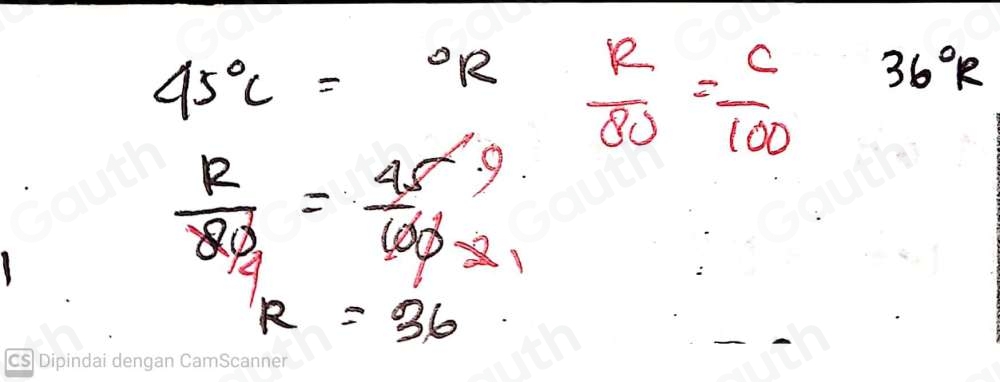 45°C = °R R/80 = C/100 36°R
R/80 4 = 45/100 9 2 1
R = 36
CS Dipindai dengan CamScanner
Gauth